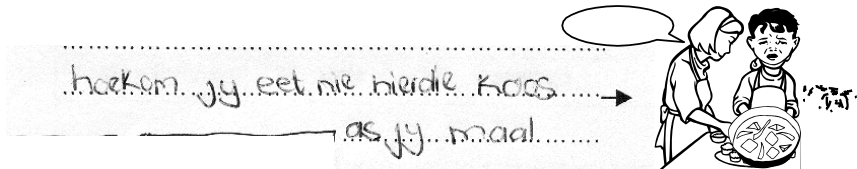 hoekom jy eet nie hierdie koos
as jy maal